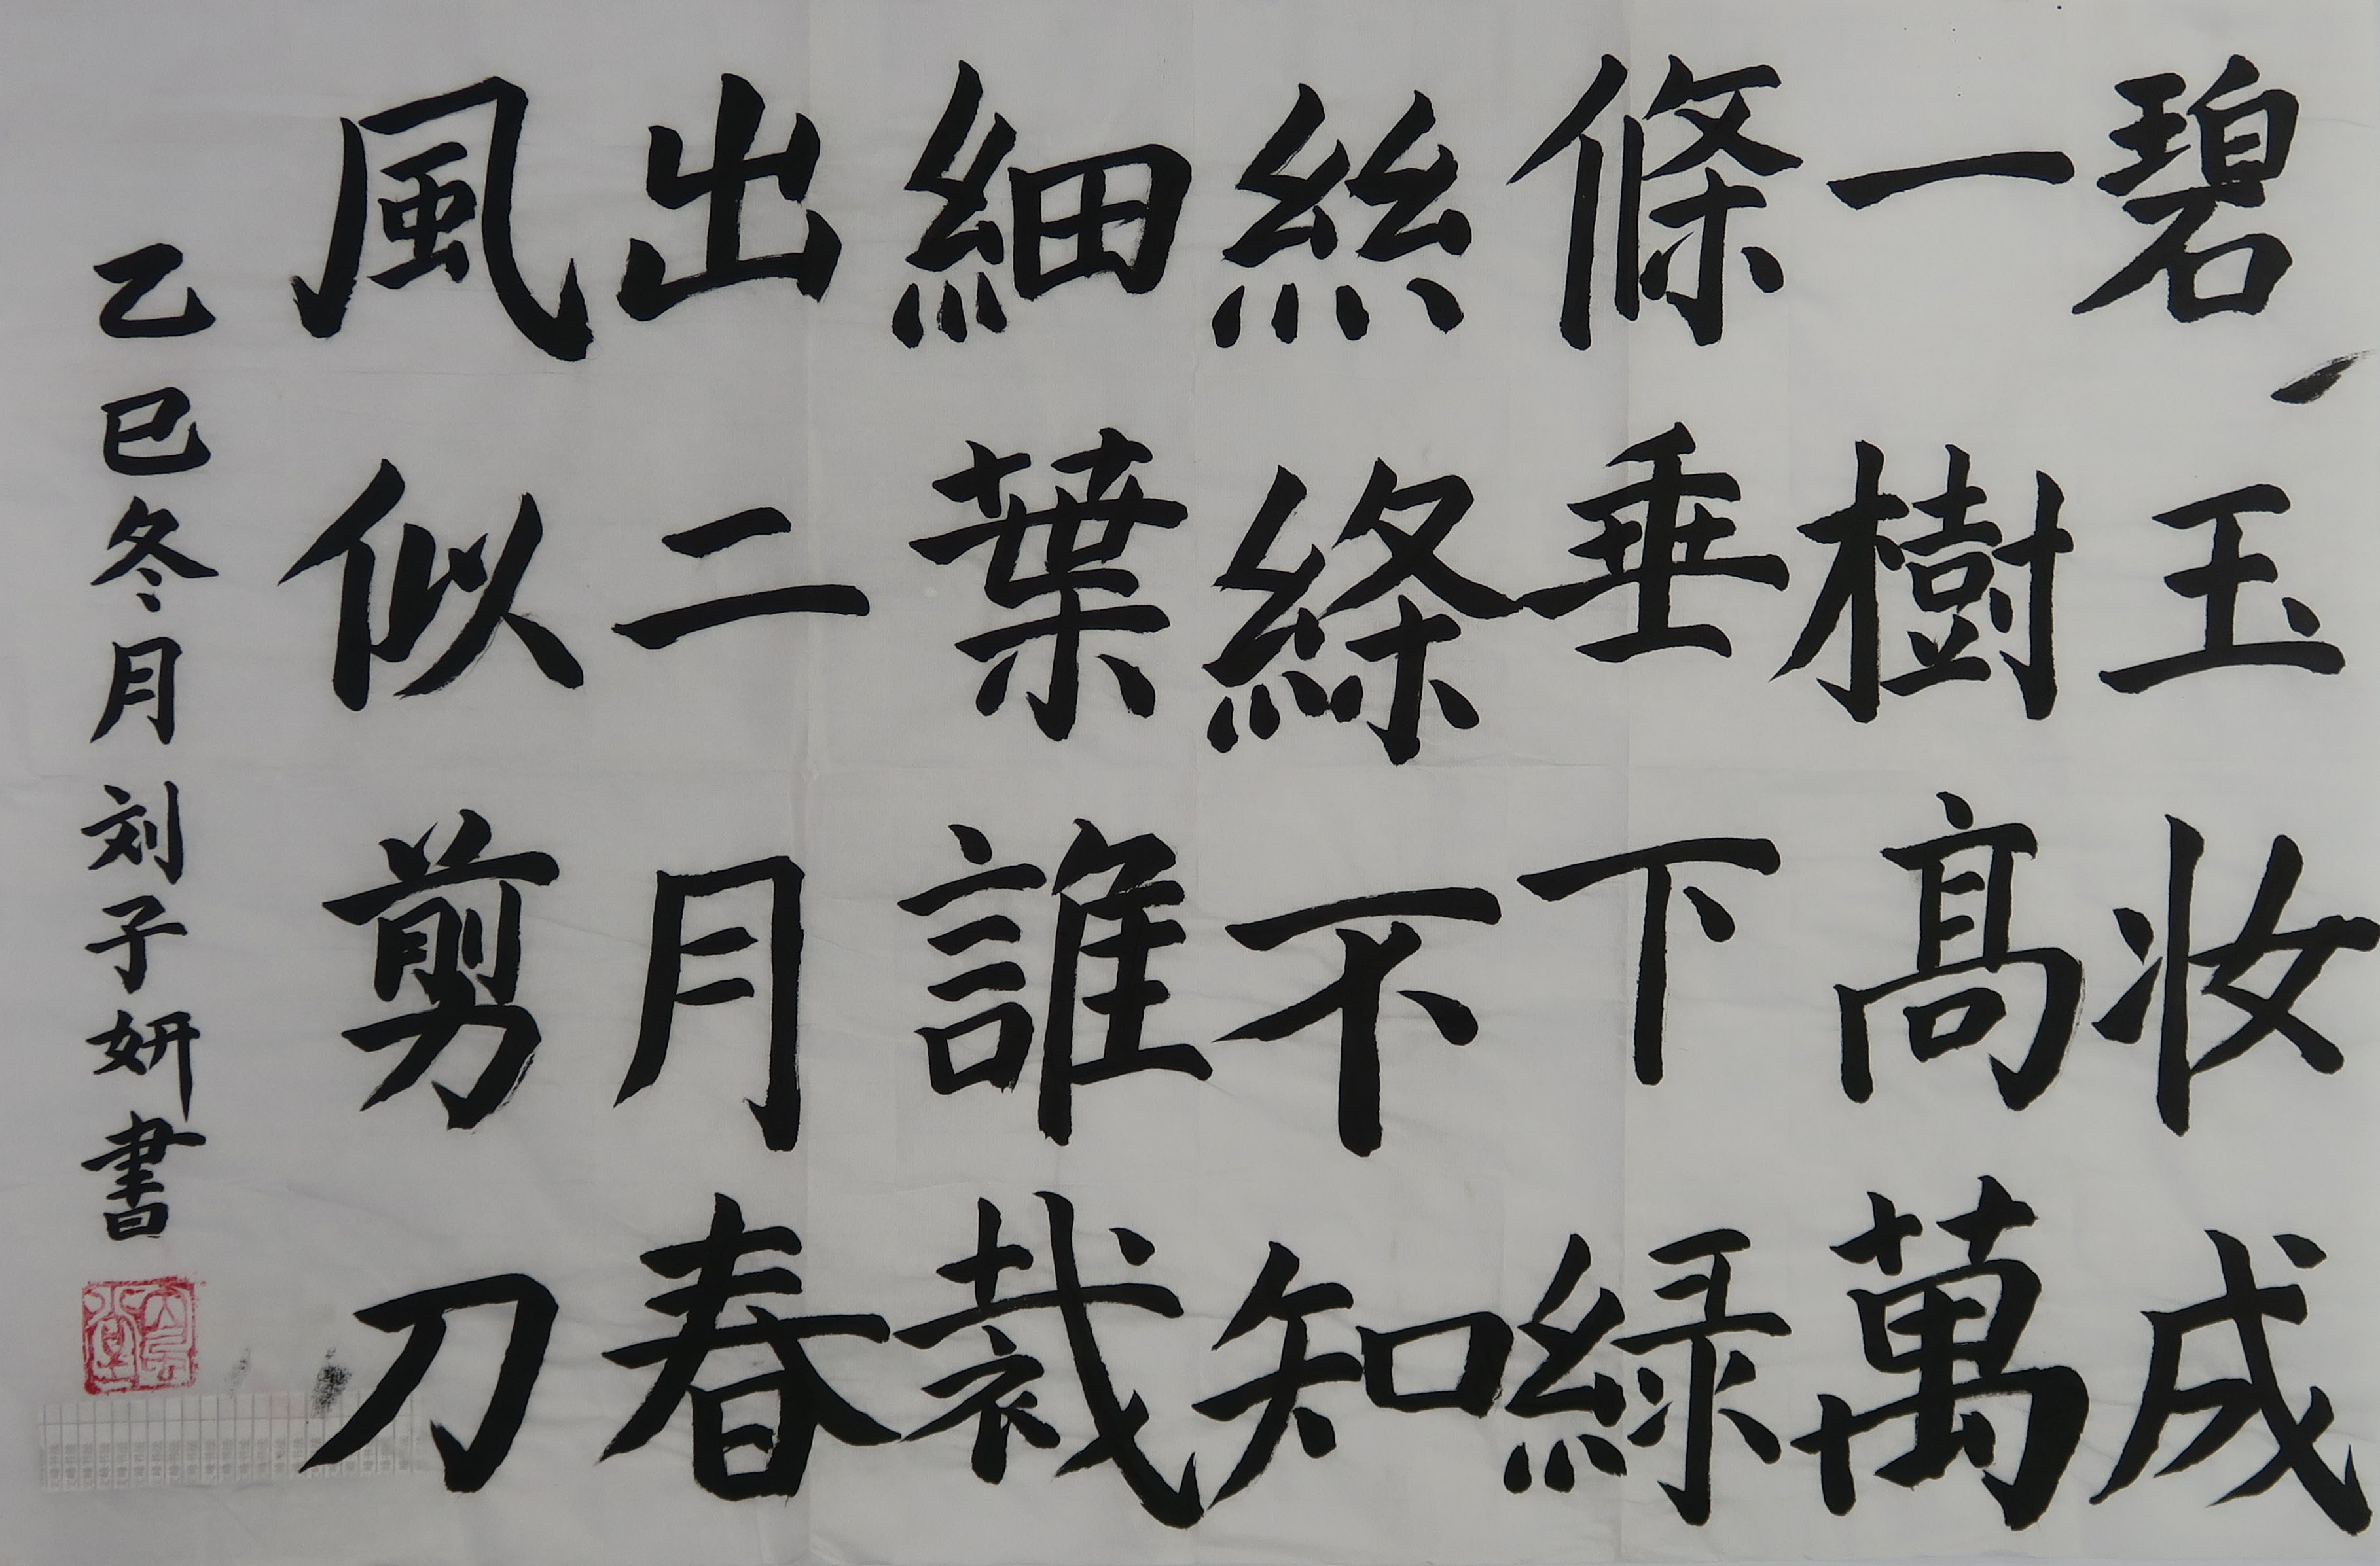 碧玉妆成
一樹髙萬
條垂下緑
絲絛不知
細葉誰裁
出二月春
風似剪刀
乙巳冬月刘子妍書